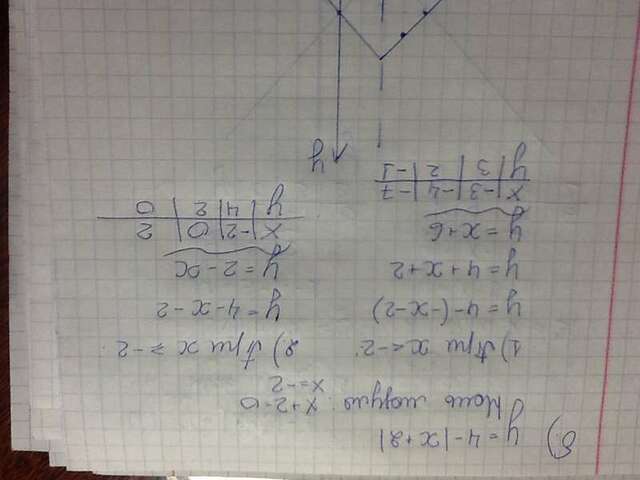 б.) y = 4-|x+2|
Ноль модуля: x+2=0
x=-2
1) При x<-2
y = 4-(-x-2)
y = 4+x+2
y = x+6
x | -3 | -4 | -7
y | 3 | 2 | -1
2.) При x ⩾ -2
y = 4-x-2
y = 2-x
x | -2 | 0 | 2
y | 4 | 2 | 0
y